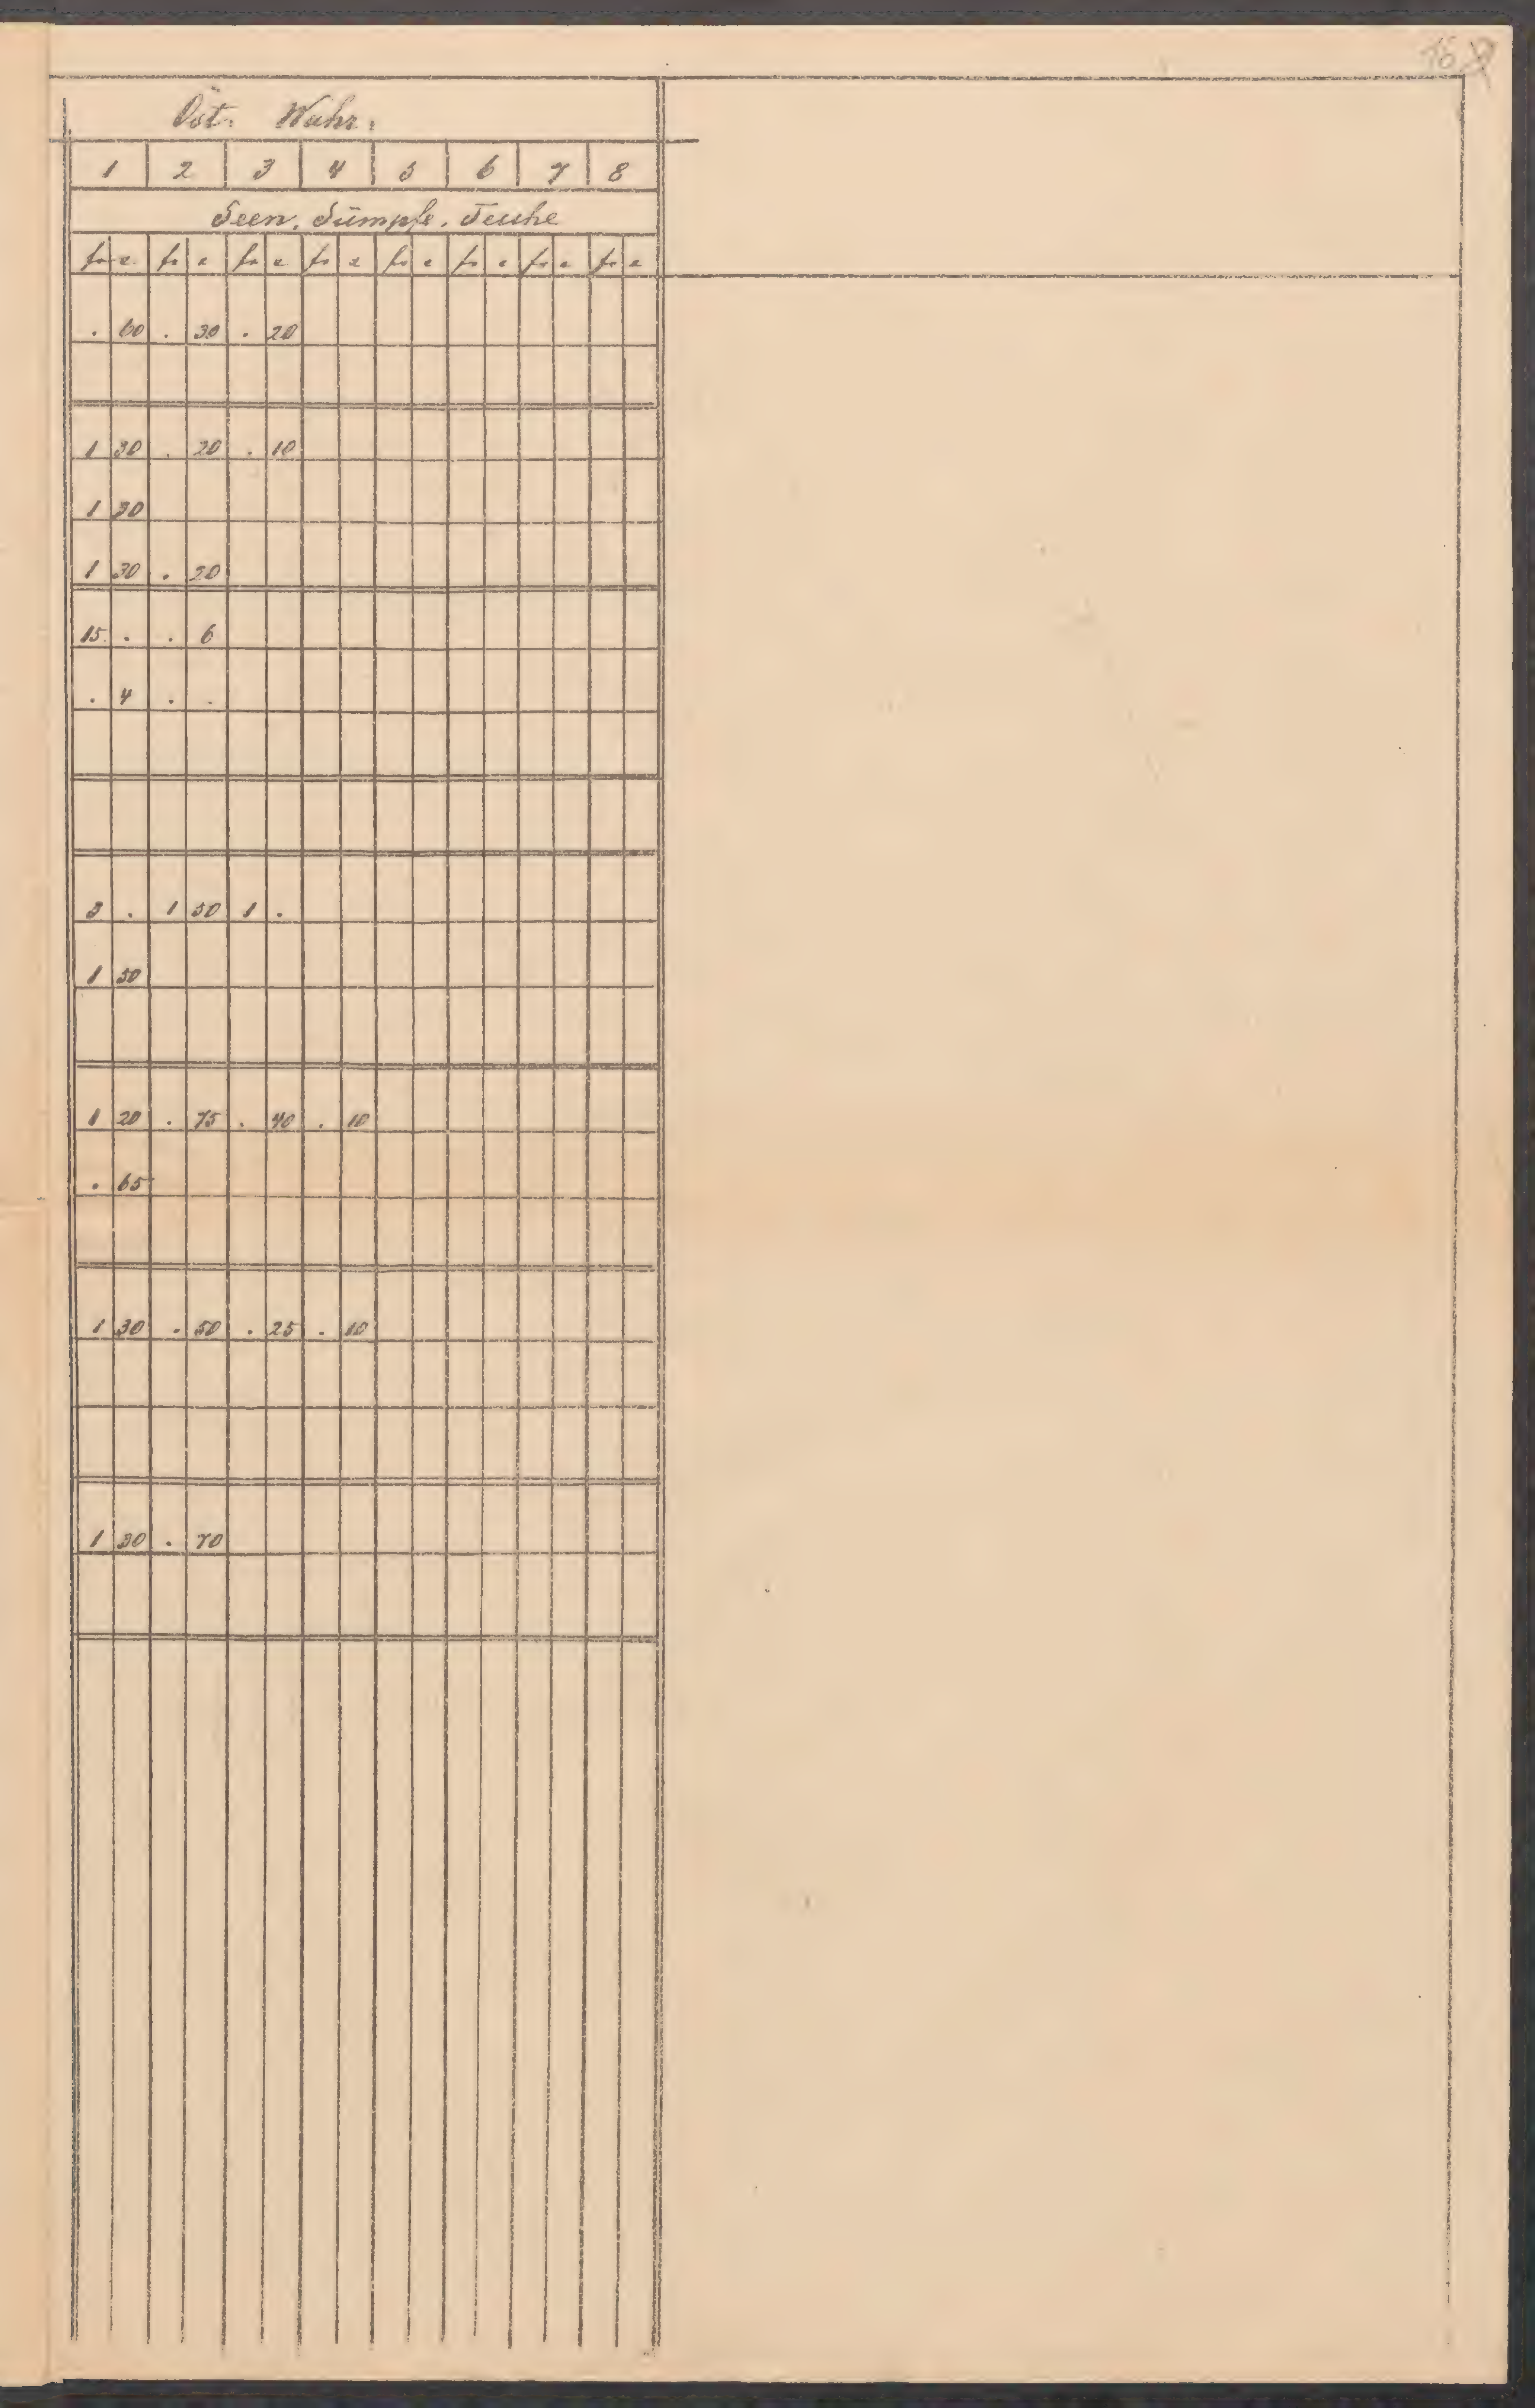 Öst. Währ.
1 2 3 4 5 6 7 8
Seen, Sümpfe, Teiche
fr c fr c fr c fr c fr c fr c fr c fr c
. 60 . 30 . 20
1 30 . 20 . 10
1 30
1 30 . 20
15 . . 6
. 4 . .
3 . 1 50 1 .
1 50
1 20 . 75 . 40 . 10
. 65
1 30 . 50 . 25 . 10
1 30 . 70